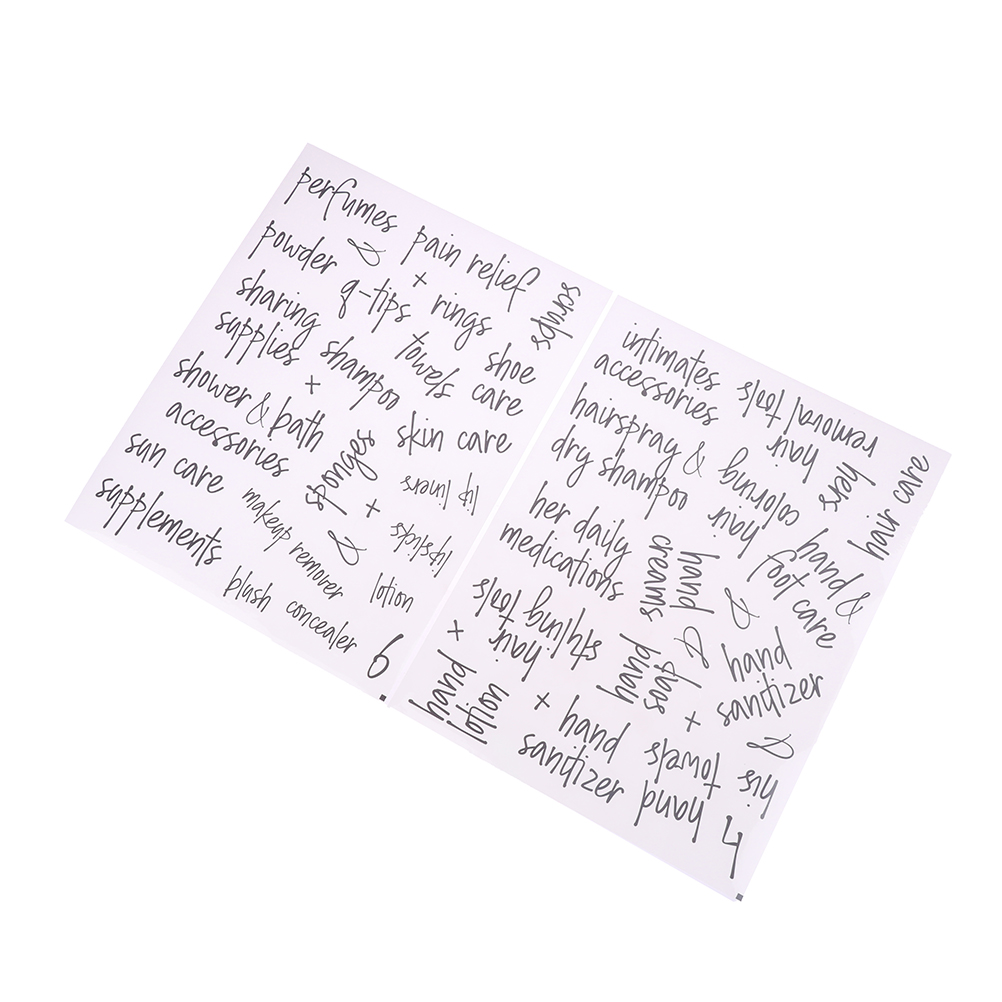 perfumes
powder
&
pain relief
+
scrubs
sharing
supplies
q-tips
rings
shampoo
towels
shoe
care
+
shower & bath
accessories
sponges
skin care
lip liners
sun care
+
lipsticks
&
supplements
makeup remover
lotion
blush
concealer
6
intimates
accessories
hair
removal tools
hairspray &
dry shampoo
hair
coloring
hers
hair care
her daily
medications
hand
creams
hand &
foot care
&
hair
styling tools
+
hand
soap
&
hand
sanitizer
hand
lotion
+
hand
sanitizer
+
hand towels
&
his
4